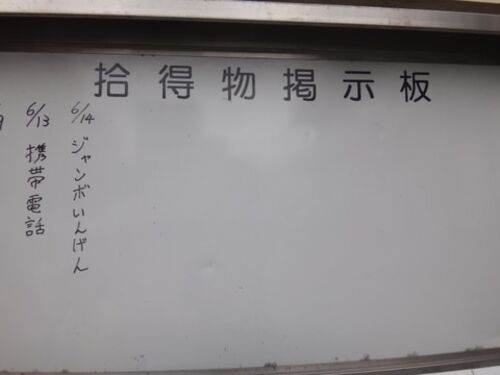 拾得物掲示板
6/14 ジャンボいんげん
6/13 携帯電話